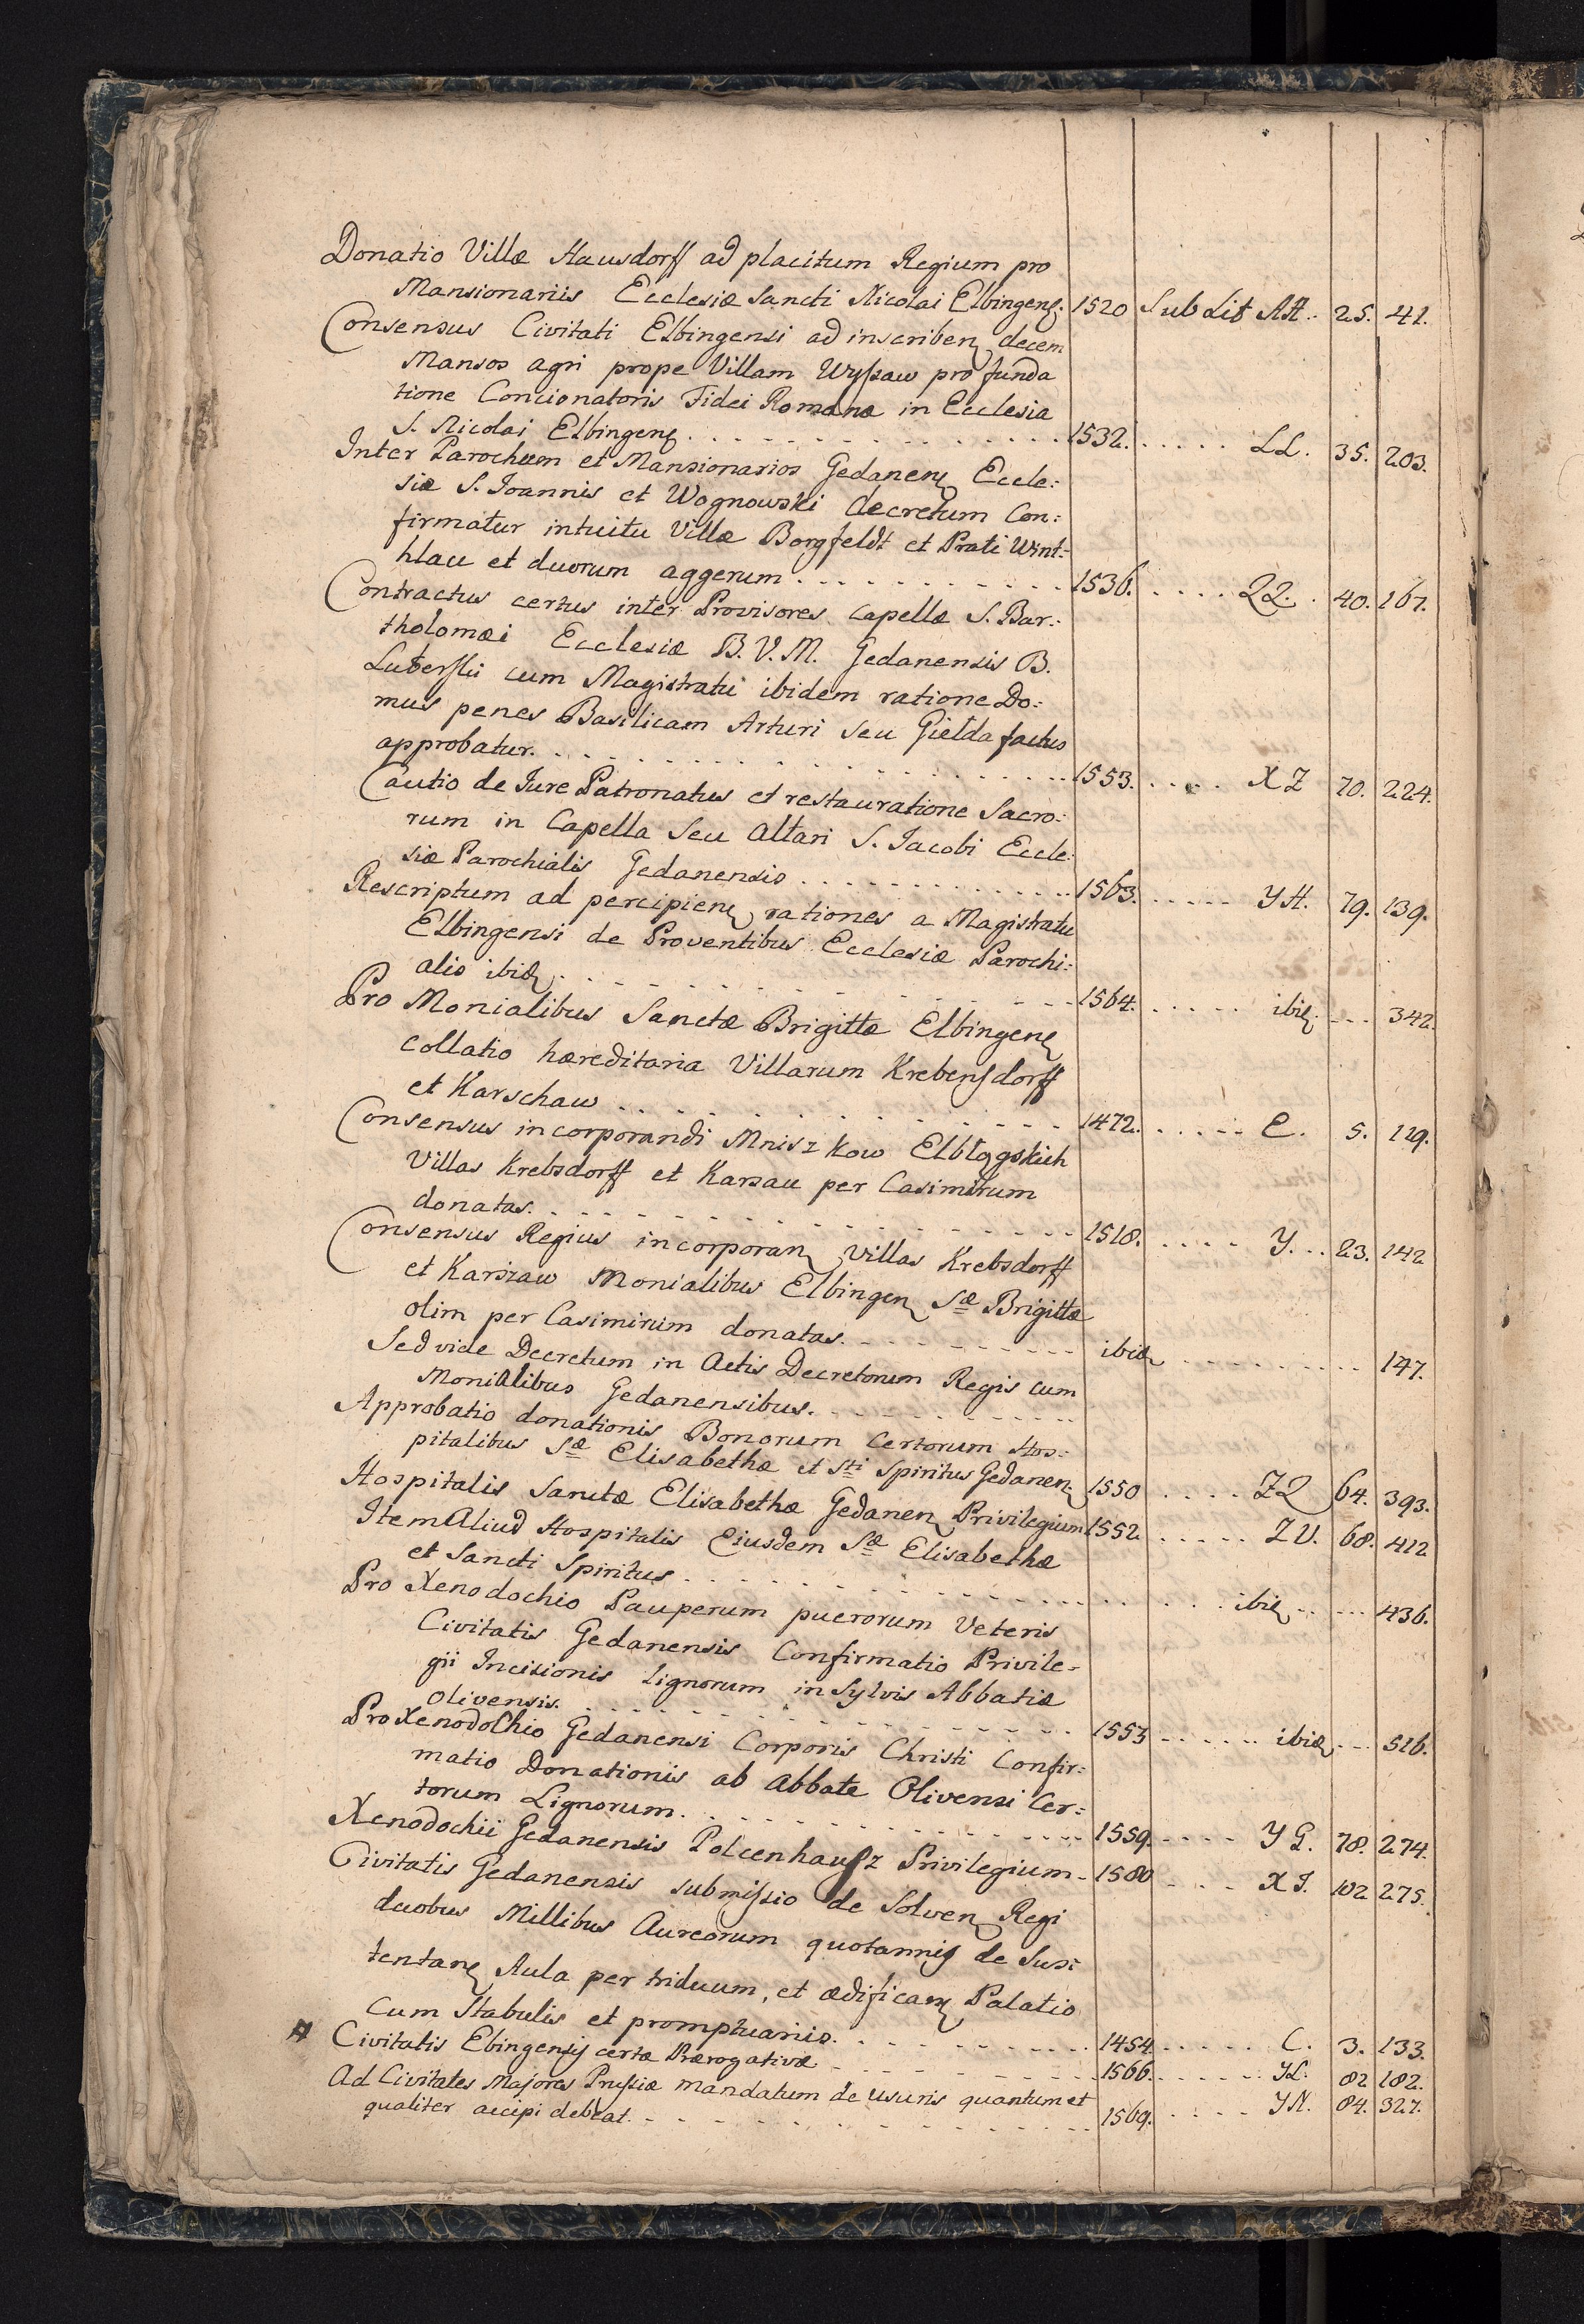 Donatio Villæ Hausdorff ad placitum Regium pro
Mansionariis Ecclesiæ Sancti Nicolai Elbingens. 1520 Sub Lit AA. 25. 41.
Consensus Civitati Elbingensi ad inscriben decem
Mansos agri prope Villam Wyszaw pro funda
tione Concionatoris Fidei Romanæ in Ecclesia
S. Nicolai Elbingens. 1532. LL. 35. 203.
Inter Parochum et Mansionarios Gedanens Eccle:
siæ S. Joannis et Wognowski decretum Con:
firmatur intuitu Villæ Borgfeldt et Prati Wint-
hlau et duorum aggerum. 1536. QQ. 40. 167.
Contractus certus inter Provisores Capellæ S. Bar:
tholomæi Ecclesiæ B. V. M. Gedanensis B.
cum Magistratu ibidem ratione Do:
mus penes Basilicam Arturi seu Gielda factus
approbatur. 1553. XZ 70. 224.
Cautio de Jure Patronatus et restauratione Sacro:
rum in Capella seu Altari S. Jacobi Eccle:
siæ Parochialis Gedanensis 1563. YH. 79. 139.
Rescriptum ad percipien rationes a Magistratu
Elbingensi de Proventibus Ecclesiæ Parochi:
alis ibid. 1564. ibid. 342.
Pro Monialibus Sanctæ Brigittæ Elbingens
collatio hæreditaria Villarum Krebensdorff
et Karschaw 1472. E. 5. 129.
Consensus incorporandi Mniszkow Elblągskich
Villas Krebsdorff et Karsau per Casimirum
donatas. 1518. Y. 23. 142
Consensus Regius incorporan Villas Krebsdorff
et Karszaw Monialibus Elbingen Sæ Brigittæ
olim per Casimirum donatas. ibid 147.
Sed vide Decretum in Actis Decretorum Regis cum
Monialibus Gedanensibus.
Approbatio donationis Bonorum certorum Hos:
pitalibus Sæ Elisabethæ et Sti Spiritus Gedanen 1550 ZQ 64. 393.
Hospitalis Sanctæ Elisabethæ Gedanen Privilegium 1552 ZU. 68. 412
Item Aliud Hospitalis Eiusdem Sæ Elisabethæ
et Sancti Spiritus ibid 436.
Pro Xenodochio Pauperum puerorum Veteris
Civitatis Gedanensis Confirmatio Privile-
gii Incisionis lignorum in Sylvis Abbatiæ
Olivensis. 1553 ibid 516.
Pro Xenodochio Gedanensi Corporis Christi Confir:
matio Donationis ab Abbate Olivensi Cer:
torum Lignorum. 1559. YG. 78. 274.
Xenodochii Gedanensis Polcenhausz Privilegium 1580 XI. 102 275.
Civitatis Gedanensis submissio de Solven Regi
duobus Millibus Aureorum quotannis de Sus:
tentan Aula per triduum, et ædifican Palatio
cum Stabulis et promptuariis. 1454. C. 3. 133.
# Civitatis Ebingensis certæ Prærogativæ 1566. YL. 82 182.
Ad Civitates Majores Prussiæ mandatum de usuris quantum et
qualiter accipi debeat. 1569. YN. 84. 327.